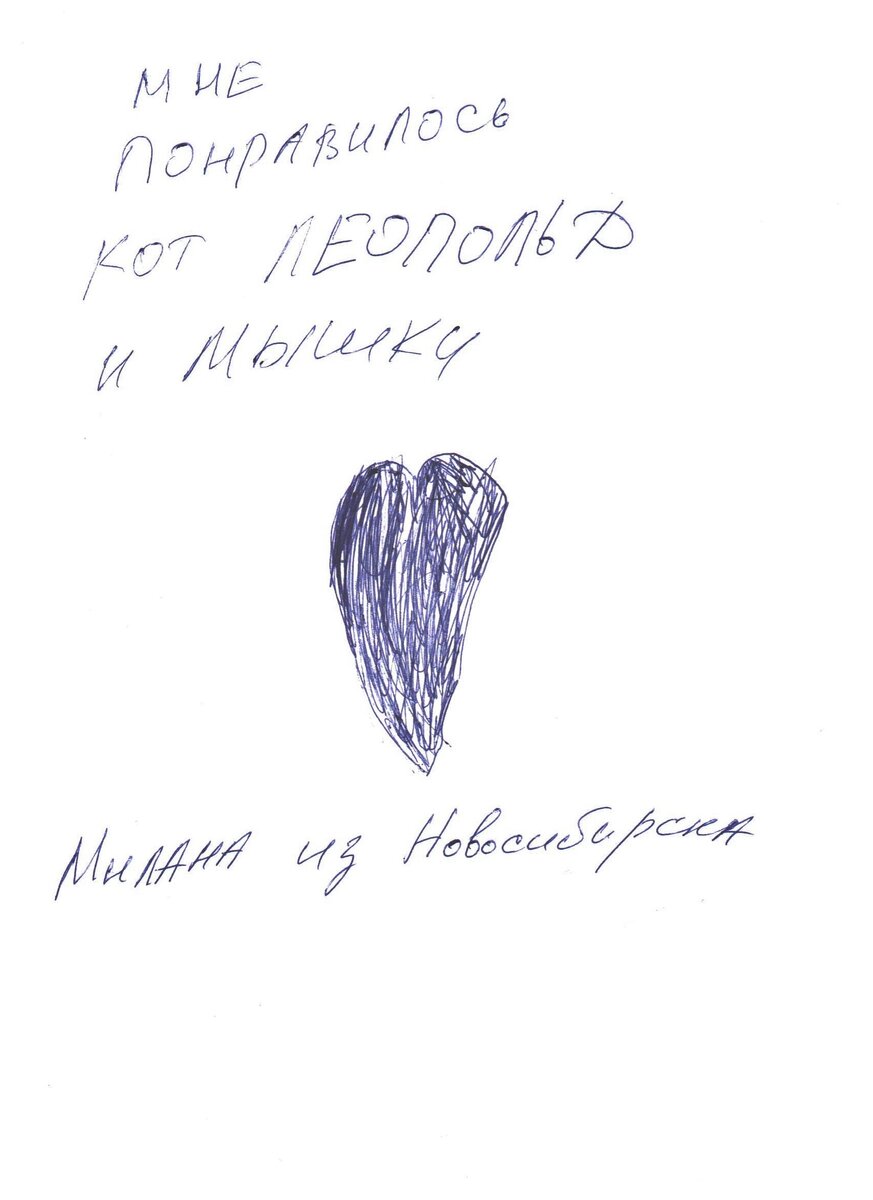 МНЕ
ПОНРАВИЛОСЬ
КОТ ЛЕОПОЛЬД
И МЫШКИ
Милана из Новосибирска